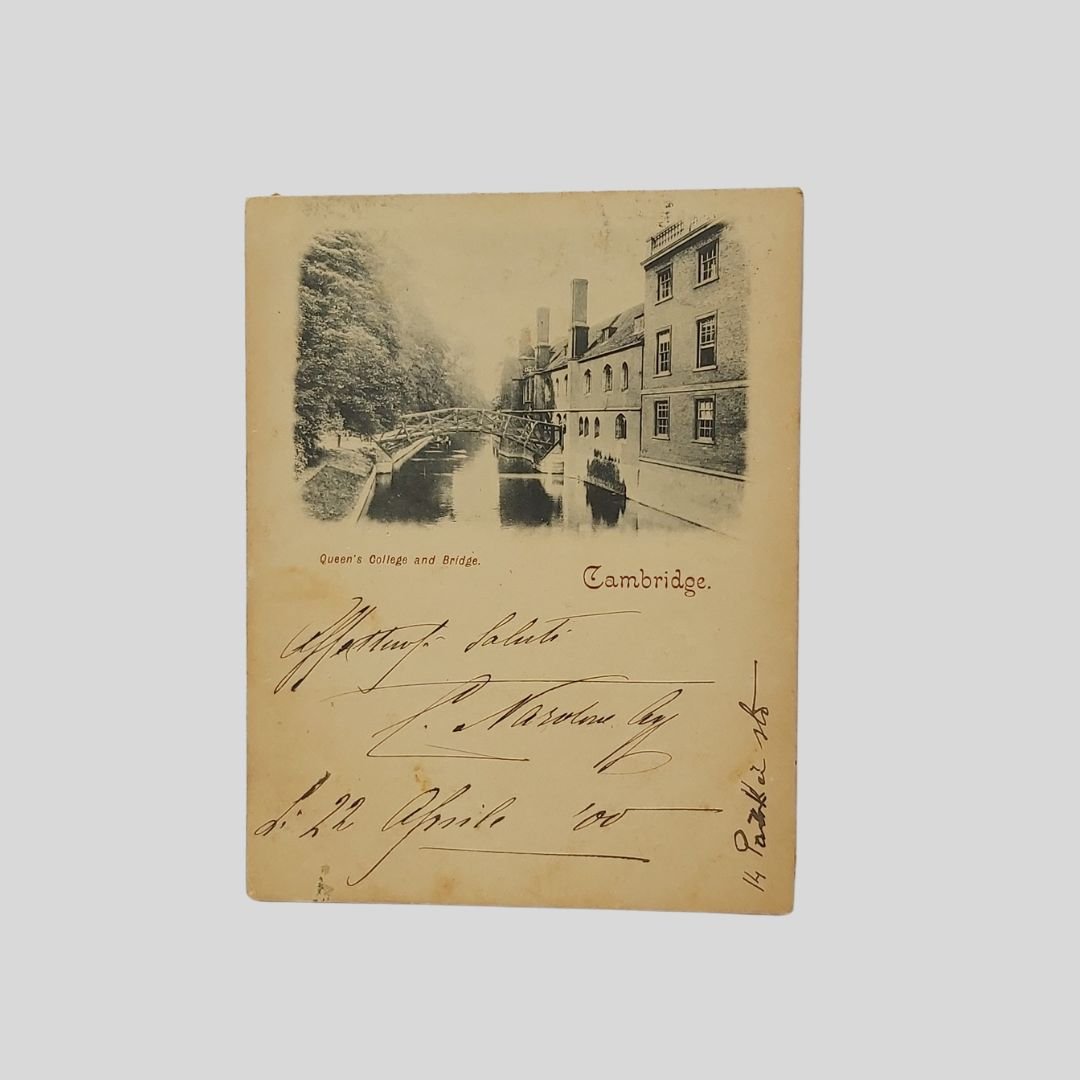 Queen's College and Bridge.
Cambridge.
Affettuosi Saluti
C.
Li 22 Aprile '00
14